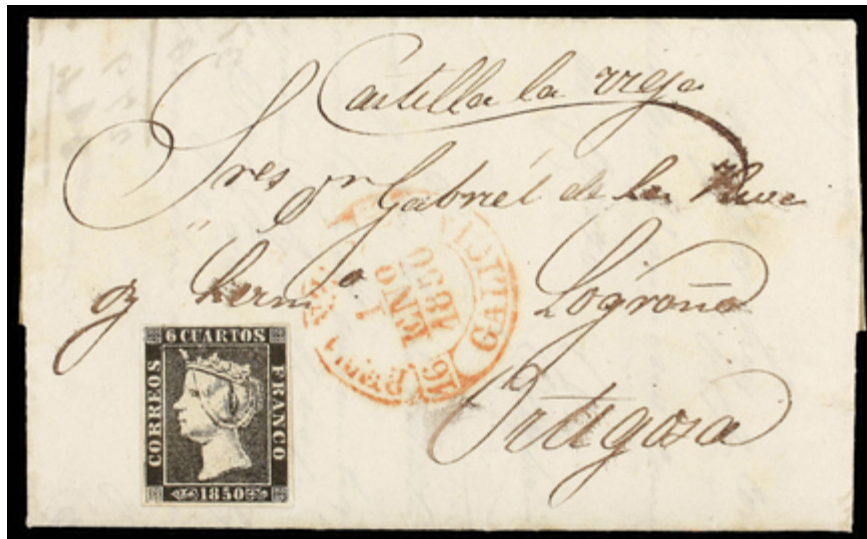 Castilla la vieja
Sres Dn Gabriel de la
y herm.º Logroño
Ortigosa
6 CUARTOS
CORREOS
FRANCO
1850
1
ENO
1850
GALICIA